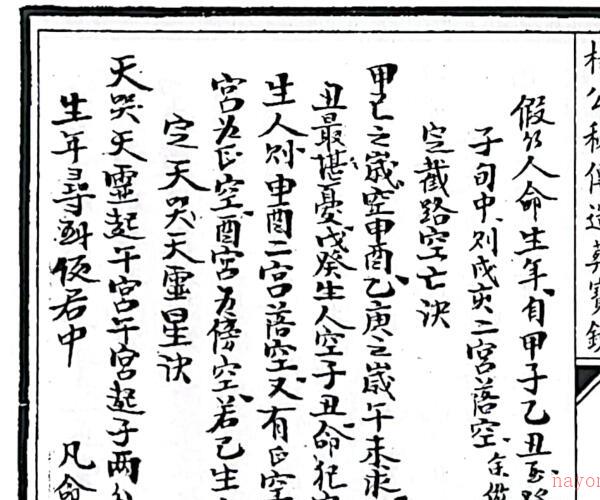 楊公秘傳造葬寶鏡
假如人命生年自甲子乙丑至
子旬中则戌亥二宮落空余倣
定截路空亡決
甲己之歲空申酉乙庚之歲午未求
丑最堪憂戊癸生人空子丑命犯
生人则申酉二宮落空又有正空
宮为正空酉宮为傍空若己生
定天哭天虛星訣
天哭天虛起午宮午宮起子兩分
生年尋到便居中 凡命
nayon